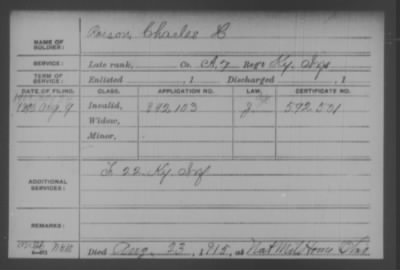 NAME OF SOLDIER: Charles H
SERVICE: Late rank, Co. A. 7 Reg't Ky. Inf
TERM OF SERVICE: Enlisted , 1 Discharged , 1
DATE OF FILING. CLASS. APPLICATION NO. LAW. CERTIFICATE NO.
Aug. 9 Invalid, 892,103 592,501
Widow,
Minor,
ADDITIONAL SERVICES: 22 Ky Inf
REMARKS:
Died Aug. 23, 1915, at Nat Mil Home